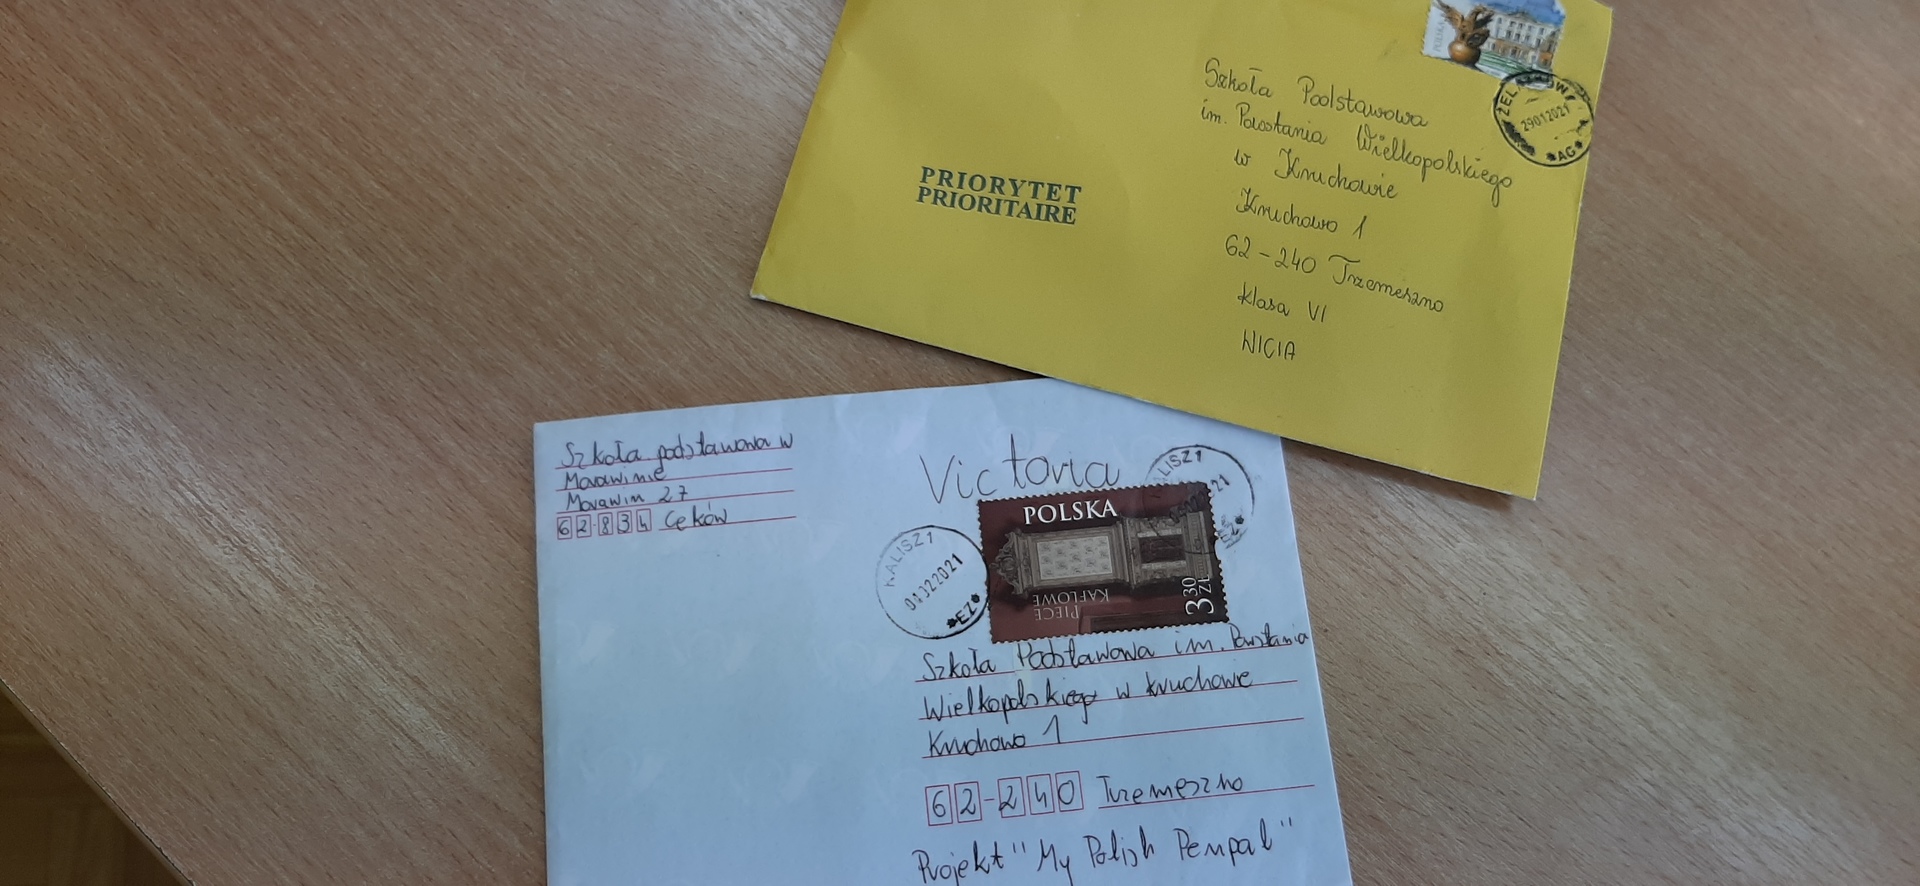 POLSKA
ŻEL
29012021
*AG*
Szkoła Podstawowa
im. Powstania Wielkopolskiego
w Kruchowie
Kruchowo 1
62-240 Trzemeszno
klasa VI
NICIA
PRIORYTET
PRIORITAIRE
Szkoła podstawowa w
Morawinie
Morawin 27
62-834 Ceków
Victoria
KALISZ 1
*EZ*
POLSKA
PIECE
KAFLOWE
3 30 ZŁ
KALISZ 1
04022021
*EZ*
Szkoła Podstawowa im. Powstania
Wielkopolskiego w Kruchowe
Kruchowo 1
62-240 Trzemeszno
Projekt "My Polish Penpal"